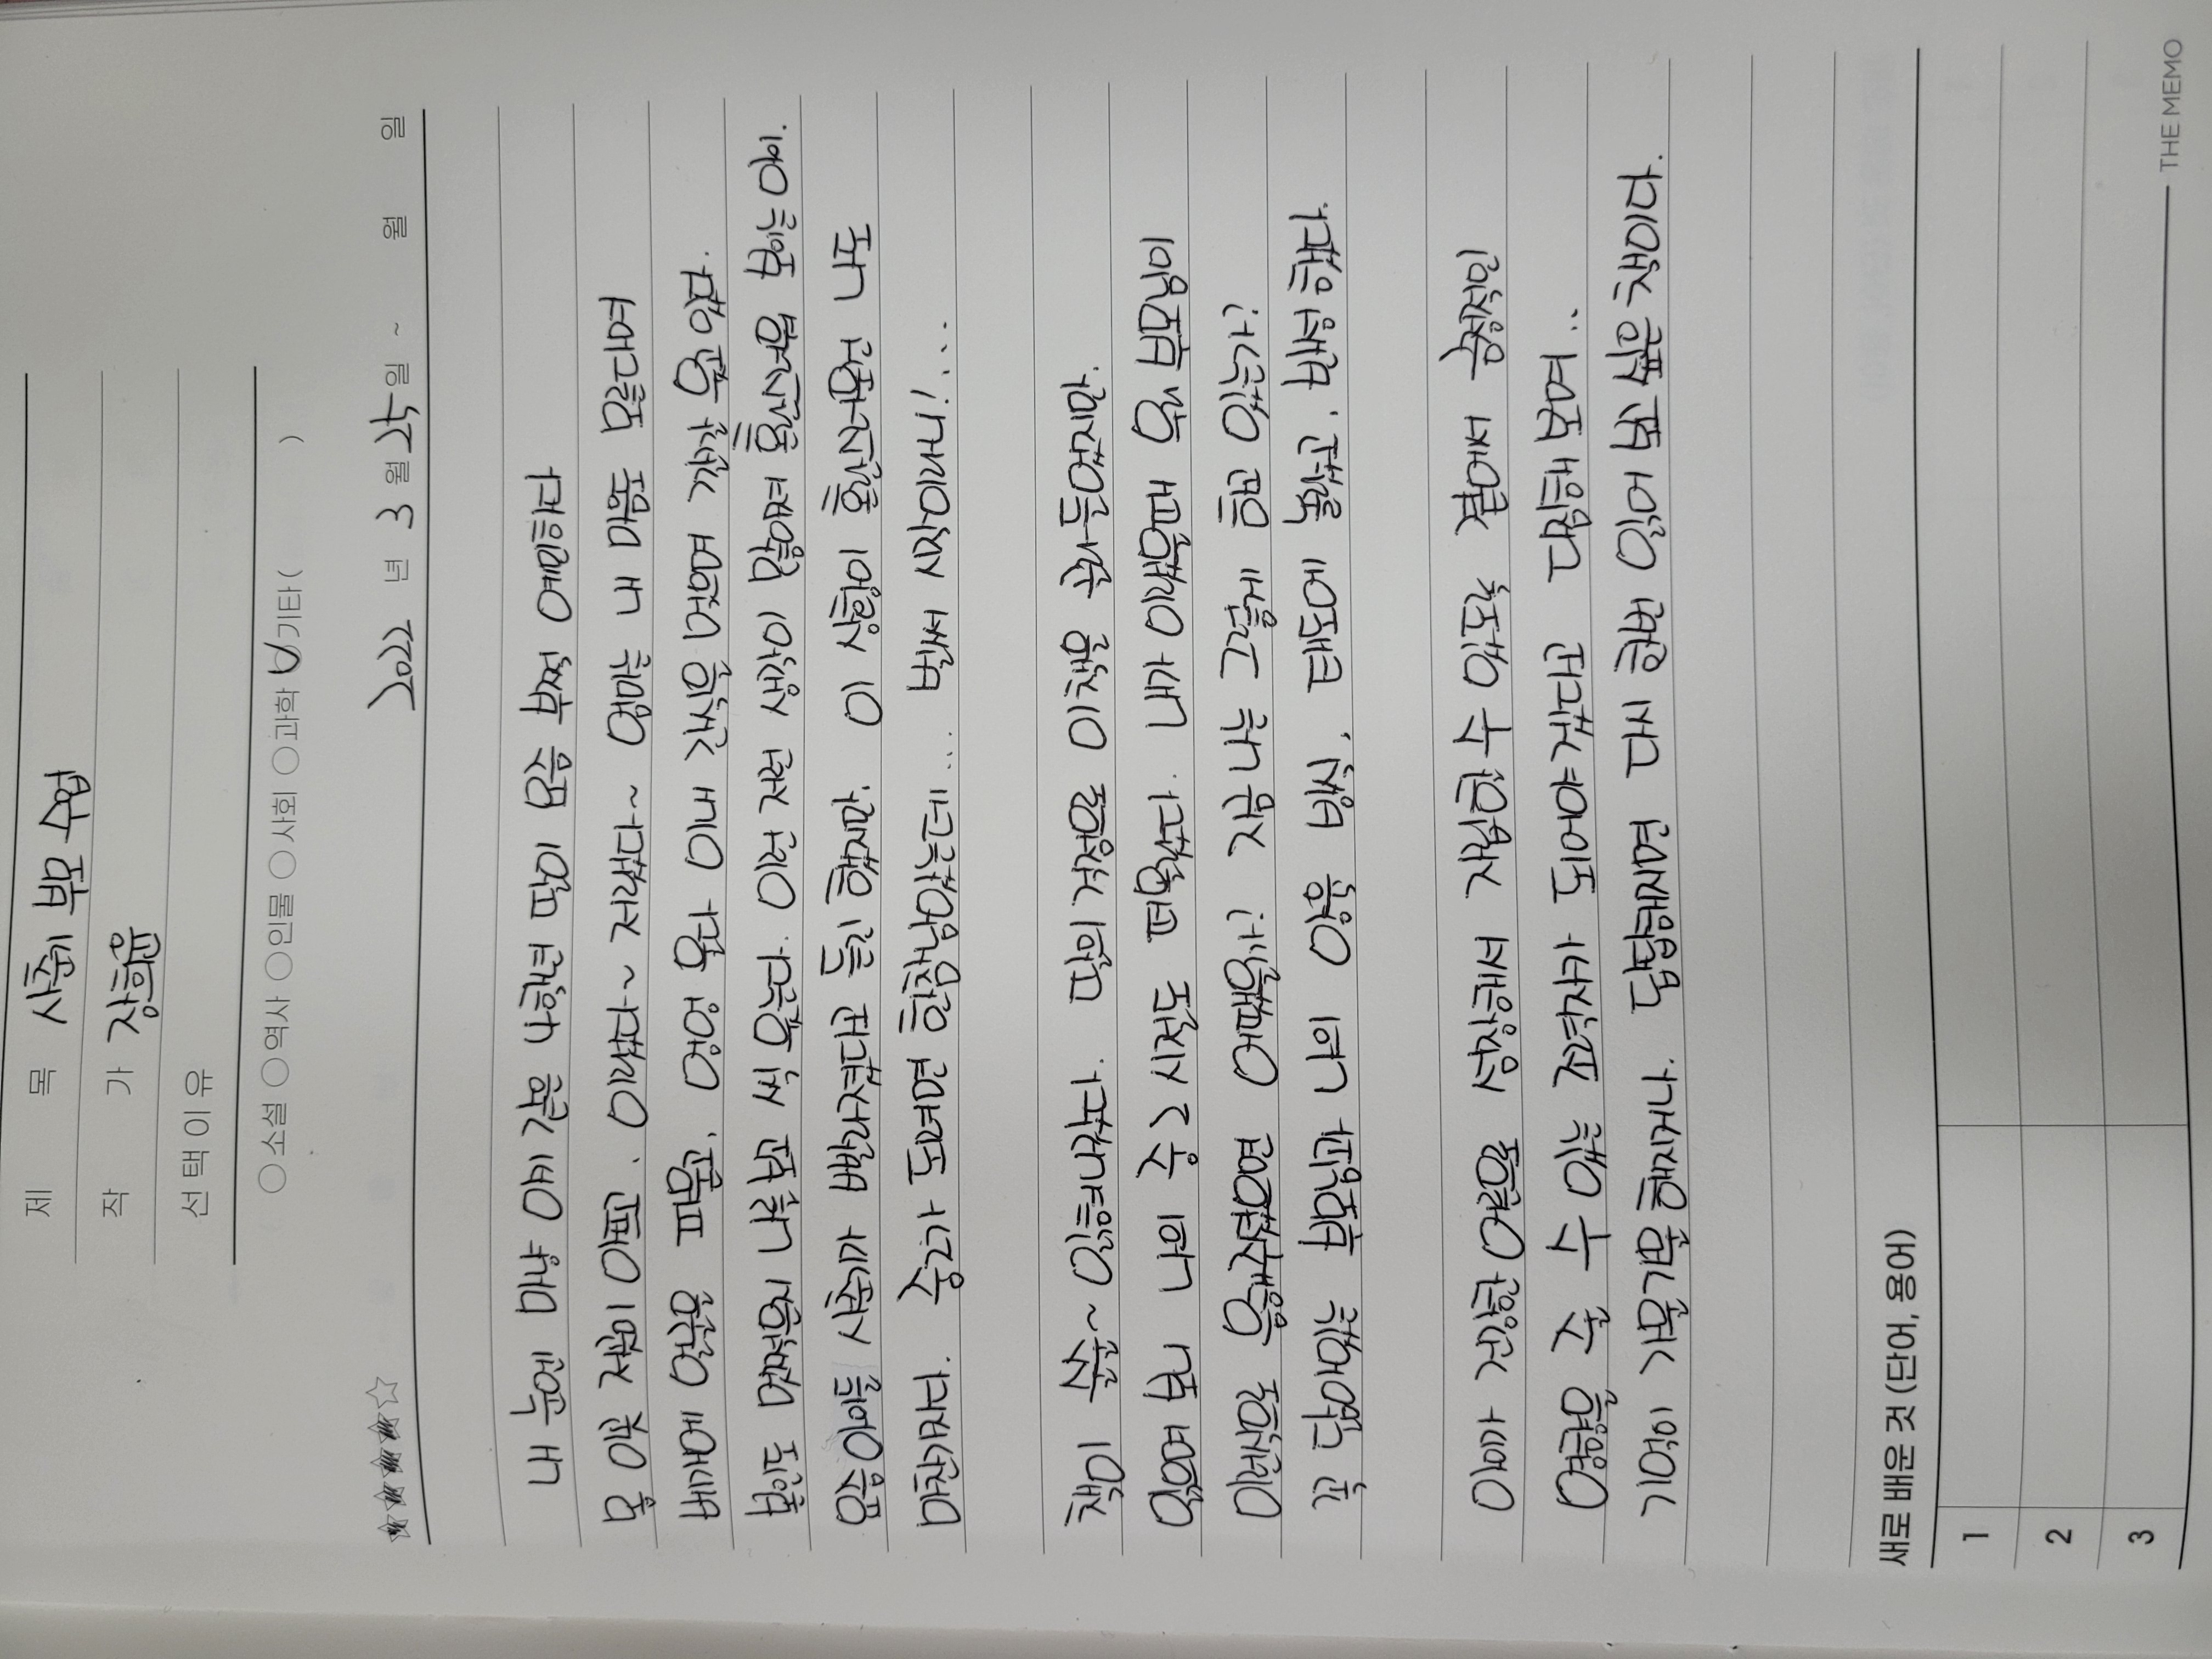 제 목 사춘기 부모 수업
작 가 장희윤
선택이유
○소설 ○역사 ○인물 ○사회 ○과학 ✓기타 ( )
★★★★☆ 2022 년 3 월 25 일 ~ 월 일
내 눈엔 마냥 아기 같은 4학년 딸이 요즘 부쩍 예민하다
몸 이곳 저곳이 아프고, 이랬다~ 저랬다~ 엄마는 내 마음도 모른다며
베개에 얼굴을 파묻고, 엉엉 울다 이내 간식을 먹으며 깔깔 웃고 있다.
본인도 멋쩍은지 나를 보고 씩 웃는다. 이런 저런 생각이 많아져 혼란스러워 보이는 아이.
요즘 아이들 사춘기가 빨라졌다고 듣긴 했지만, 이 상황이 혼란스러운건 나도
마찬가지다. 중2가 되려면 한참남았는데... 벌써 시작이라니!...
책이 술술~ 읽혀나갔다. 딸의 걱정으로 이 책을 골라 들었지만,
읽으며 보니 나의 중2 시절도 떠올랐다. 내가 이랬을때 우리 부모님이
이런식으로 응해주셨으면 어땠을까? 지금 나는 그렇게 하고 있는가?
꼭 닮아있는 부모님과 나의 양육 방식, 태도에 놀랐고, 반성 했다.
아이가 건강한 어른으로 성장해서 자립할 수 있도록 곁에서 긍정적인
영향을 줄 수 있는 조력자가 되어야겠다고 다짐해 보며..
기억이 가물가물 해지거나, 답답해지면 다시 한번 읽어 보고 싶은 책이다.
새로 배운 것 (단어, 용어)
1
2
3
THE MEMO